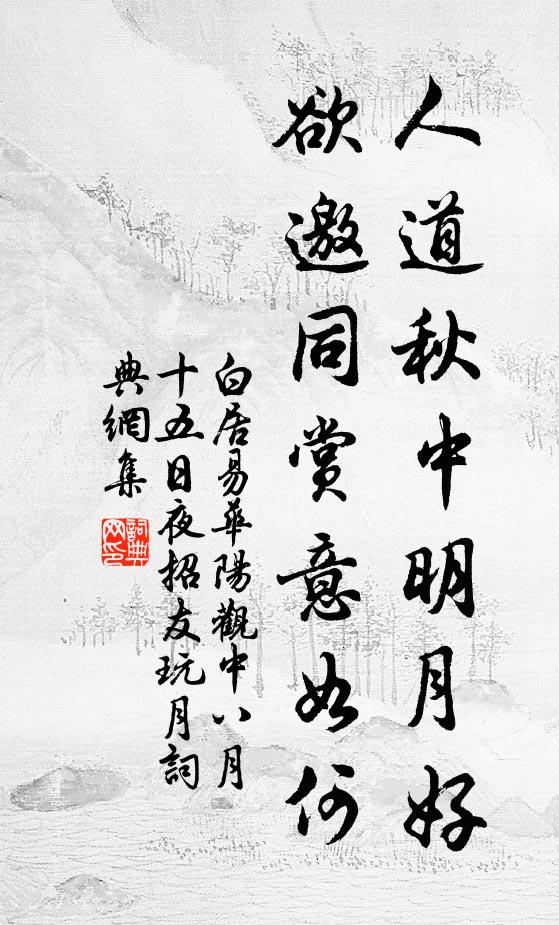 人道秋中明月好
欲邀同賞意如何
白居易華陽觀中八月
十五日夜招友玩月詞
典網集
詞典
网印